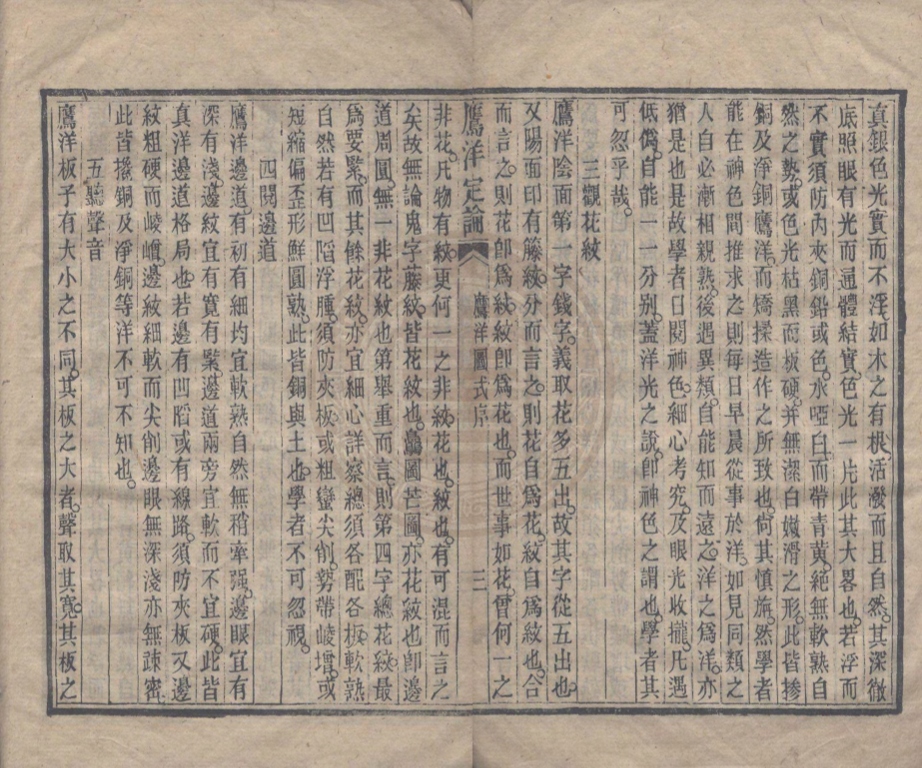 真銀色光實而不浮如木之有根活潑而且自然其深徹
底照眼有光而通體結實色光一片此其大畧也若浮而
不實須防內夾銅鉛或色水啞白而帶青黃絕無軟熟自
然之勢或色光枯黑而板硬并無潔白嫩滑之形此皆摻
銅及淨銅鷹洋而矯揉造作之所致也何其慎旃然學者
能在神色間推求之則每日早晨從事於洋如見同類之
人自必漸相親熟後遇異類自能知而遠之洋之爲洋亦
猶是也是故學者日閱神色細心考究及眼光收攏凡遇
低僞自能一一分别蓋洋光之說卽神色之謂也學者其
可忽乎哉
三觀花紋
鷹洋陰面第一字錢字義取花多五出故其字從五出也
又陽面印有籐紋分而言之則花自爲花紋自爲紋也合
而言之則花卽爲紋紋卽爲花也而世事如花曾何一之
鷹洋定論
鷹洋圖式序
三
非花凡物有紋更何一之非紋花也紋也有可混而言之
矣故無論鬼字藤紋皆花紋也鷹圖芒圖亦花紋也卽邊
道周圓無一非花紋也第舉重而言則第四字總花紋最
爲要緊而其餘花紋亦宜細心詳察總須各配各板軟熟
自然若有凹陷浮腫須防夾板或粗蠻尖削剪帶崚嶒或
短縮偏歪形鮮圓熟此皆銅與土也學者不可忽視
四閱邊道
鷹洋邊道有初有細均宜軟熟自然無稍牽强邊眼宜有
深有淺邊紋宜有寬有緊邊道兩旁宜軟而不宜硬此皆
真洋邊道格局也若邊有凹䧟或有線路須防夾板又邊
紋粗硬而崚嶒邊紋細軟而尖削邊眼無深淺亦無疎密
此皆摻銅及淨銅等洋不可不知也
五聽聲音
鷹洋板子有大小之不同其板之大者聲取其寬其板之